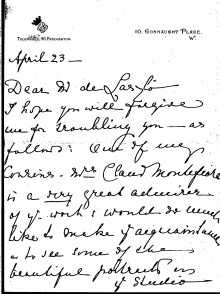 TELEPHONE, PADDINGTON.
10, CONNAUGHT PLACE,
W.
April 23 –
Dear Mr de Laszlo
I hope you will forgive
me for troubling you — as
follows: One of my
Cousins – Mrs Claud Montefiore
is a very great admirer
of yr work & would so much
like to make yr acquaintance
& to see some of the
beautiful portraits in
yr studio